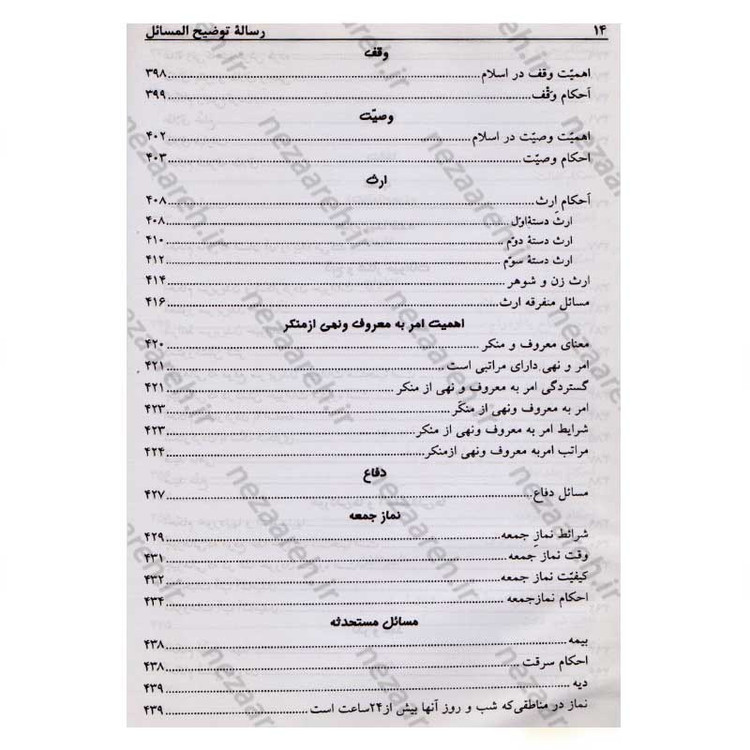 ۱۴ رسالهٔ توضیح المسائل
وقف
اهمیّت وقف در اسلام ........ ۳۹۸
اَحکام وَقْف ........ ۳۹۹
وصیّت
اهمیّت وصیّت در اسلام ........ ۴۰۲
احکام وصیّت ........ ۴۰۳
ارث
اَحکام اِرث ........ ۴۰۸
ارثِ دستهٔ اوّل ........ ۴۰۸
ارث دستهٔ دوّم ........ ۴۱۰
ارث دستهٔ سوّم ........ ۴۱۲
ارث زن و شوهر ........ ۴۱۴
مسائل متفرقه ارث ........ ۴۱۶
اهمیت امر به معروف ونهی ازمنکر
معنای معروف و منکر ........ ۴۲۰
امر و نهی دارای مراتبی است ........ ۴۲۱
گستردگی امر به معروف و نهی از منکر ........ ۴۲۱
امر به معروف ونهی از منکَر ........ ۴۲۳
شرایط امر به معروف ونهی از منکر ........ ۴۲۳
مراتب امربه معروف ونهی ازمنکر ........ ۴۲۴
دفاع
مسائل دفاع ........ ۴۲۷
نماز جمعه
شرائط نمازِ جمعه ........ ۴۲۹
وقت نماز جمعه ........ ۴۳۱
کیفیّت نماز جمعه ........ ۴۳۲
احکام نمازجمعه ........ ۴۳۴
مسائل مستحدثه
بیمه ........ ۴۳۸
احکام سرقت ........ ۴۳۸
دیه ........ ۴۳۹
نماز در مناطقی‌که شب و روز آنها بیش از۲۴ساعت است ........ ۴۳۹
nezaareh.ir